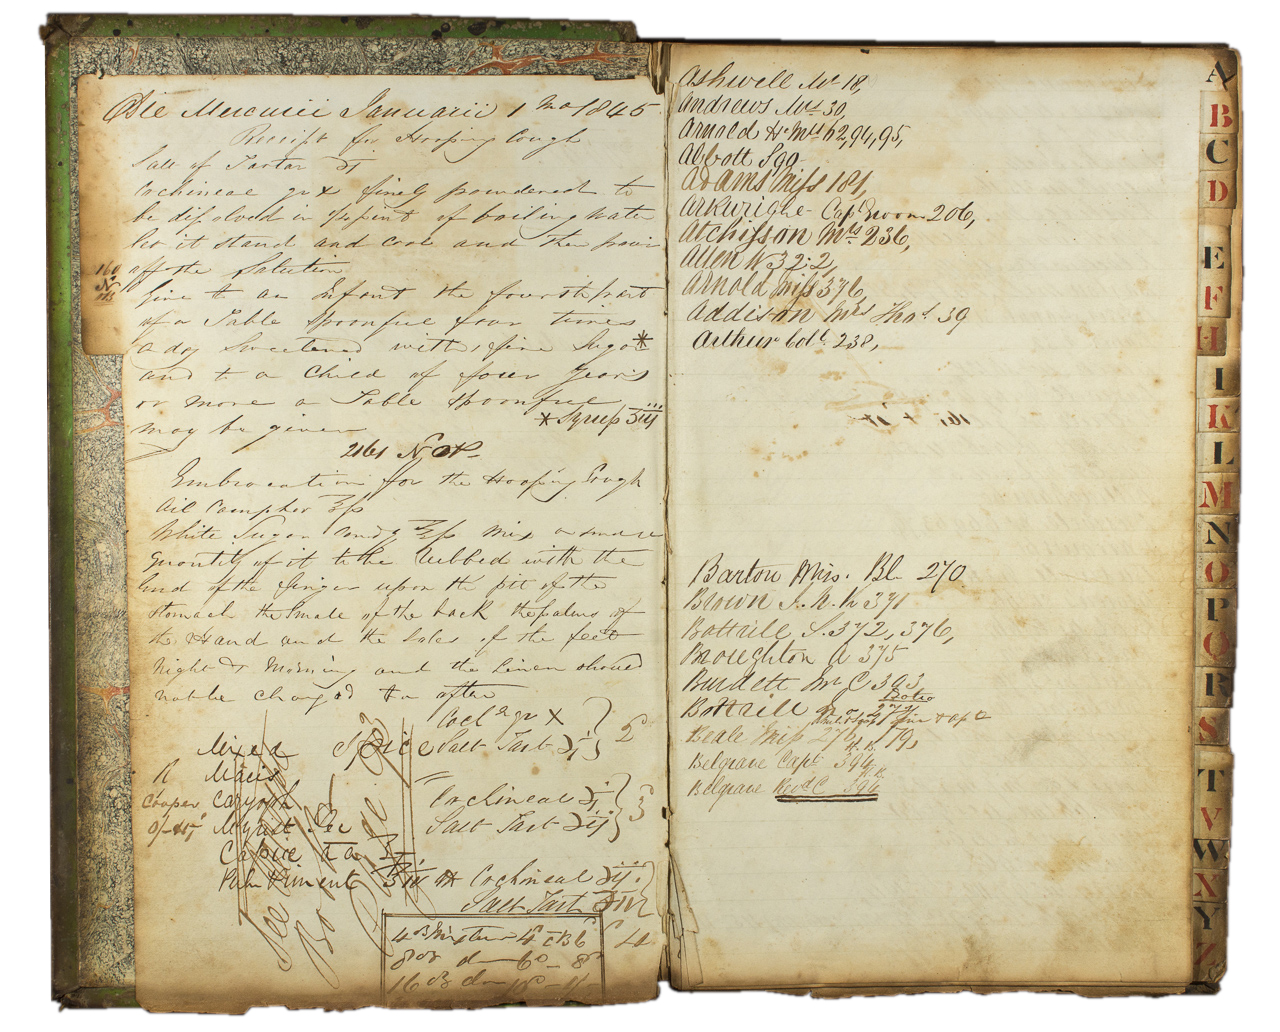 Die Mercurii Januarii 1mo 1845
Receipt for Hooping Cough
Salt of Tartar ʒi
Cochineal grx finely poundered to
be dissolved in ½ pint of boiling water
let it stand and cool and then pour
off the Solution
Give to an Infant the fourth part
of a Table Spoonful four times
a day Sweetened with fine Sugar *
and to a Child of four Years
or more a Table Spoonful
may be given
* Syrup ʒiij
2161 N
Embrocation for the Hooping Cough
Oil Campher ℥ß
White Sugar Candy ℥ß mix a small
quantity of it to be Rubbed with the
End of the finger upon the pit of the
Stomach the Small of the back the palms of
the Hand and the Soles of the feet
Night & Morning and the Linen should
not be changed after
Coch gr X
Salt Tart ʒi
2
Mixed Spice
R Macis
Cooper Caryoph
Myrist
Pim
Cochineal ʒi
Salt Tart ʒij
3
Cochineal ʒij
Salt Tart
See
Book
160
N
Ashwell Mr 18,
Andrews Mrs 30,
Arnold H. Mrs 62, 94, 95,
Abbott S 90
Adams Miss 181,
Arkwright Capt 206,
Atchisson Mrs 236,
Allen W 322,
Arnold Miss 376,
Addison Mrs Thos. 39
Arthur Coll. 238,
Barton Miss. Bl. 270
Brown J. R. W 371
Bottrill S. 372, 376,
Broughton A 375
Burdett Mr C 393
Bottrill
Beale Miss 276, 79,
Belgrave Capt. 394
Belgrave Revd C 396
A
B
C
D
E
F
H
I
K
L
M
N
O
P
Q
R
S
T
V
W
X
Y
Z